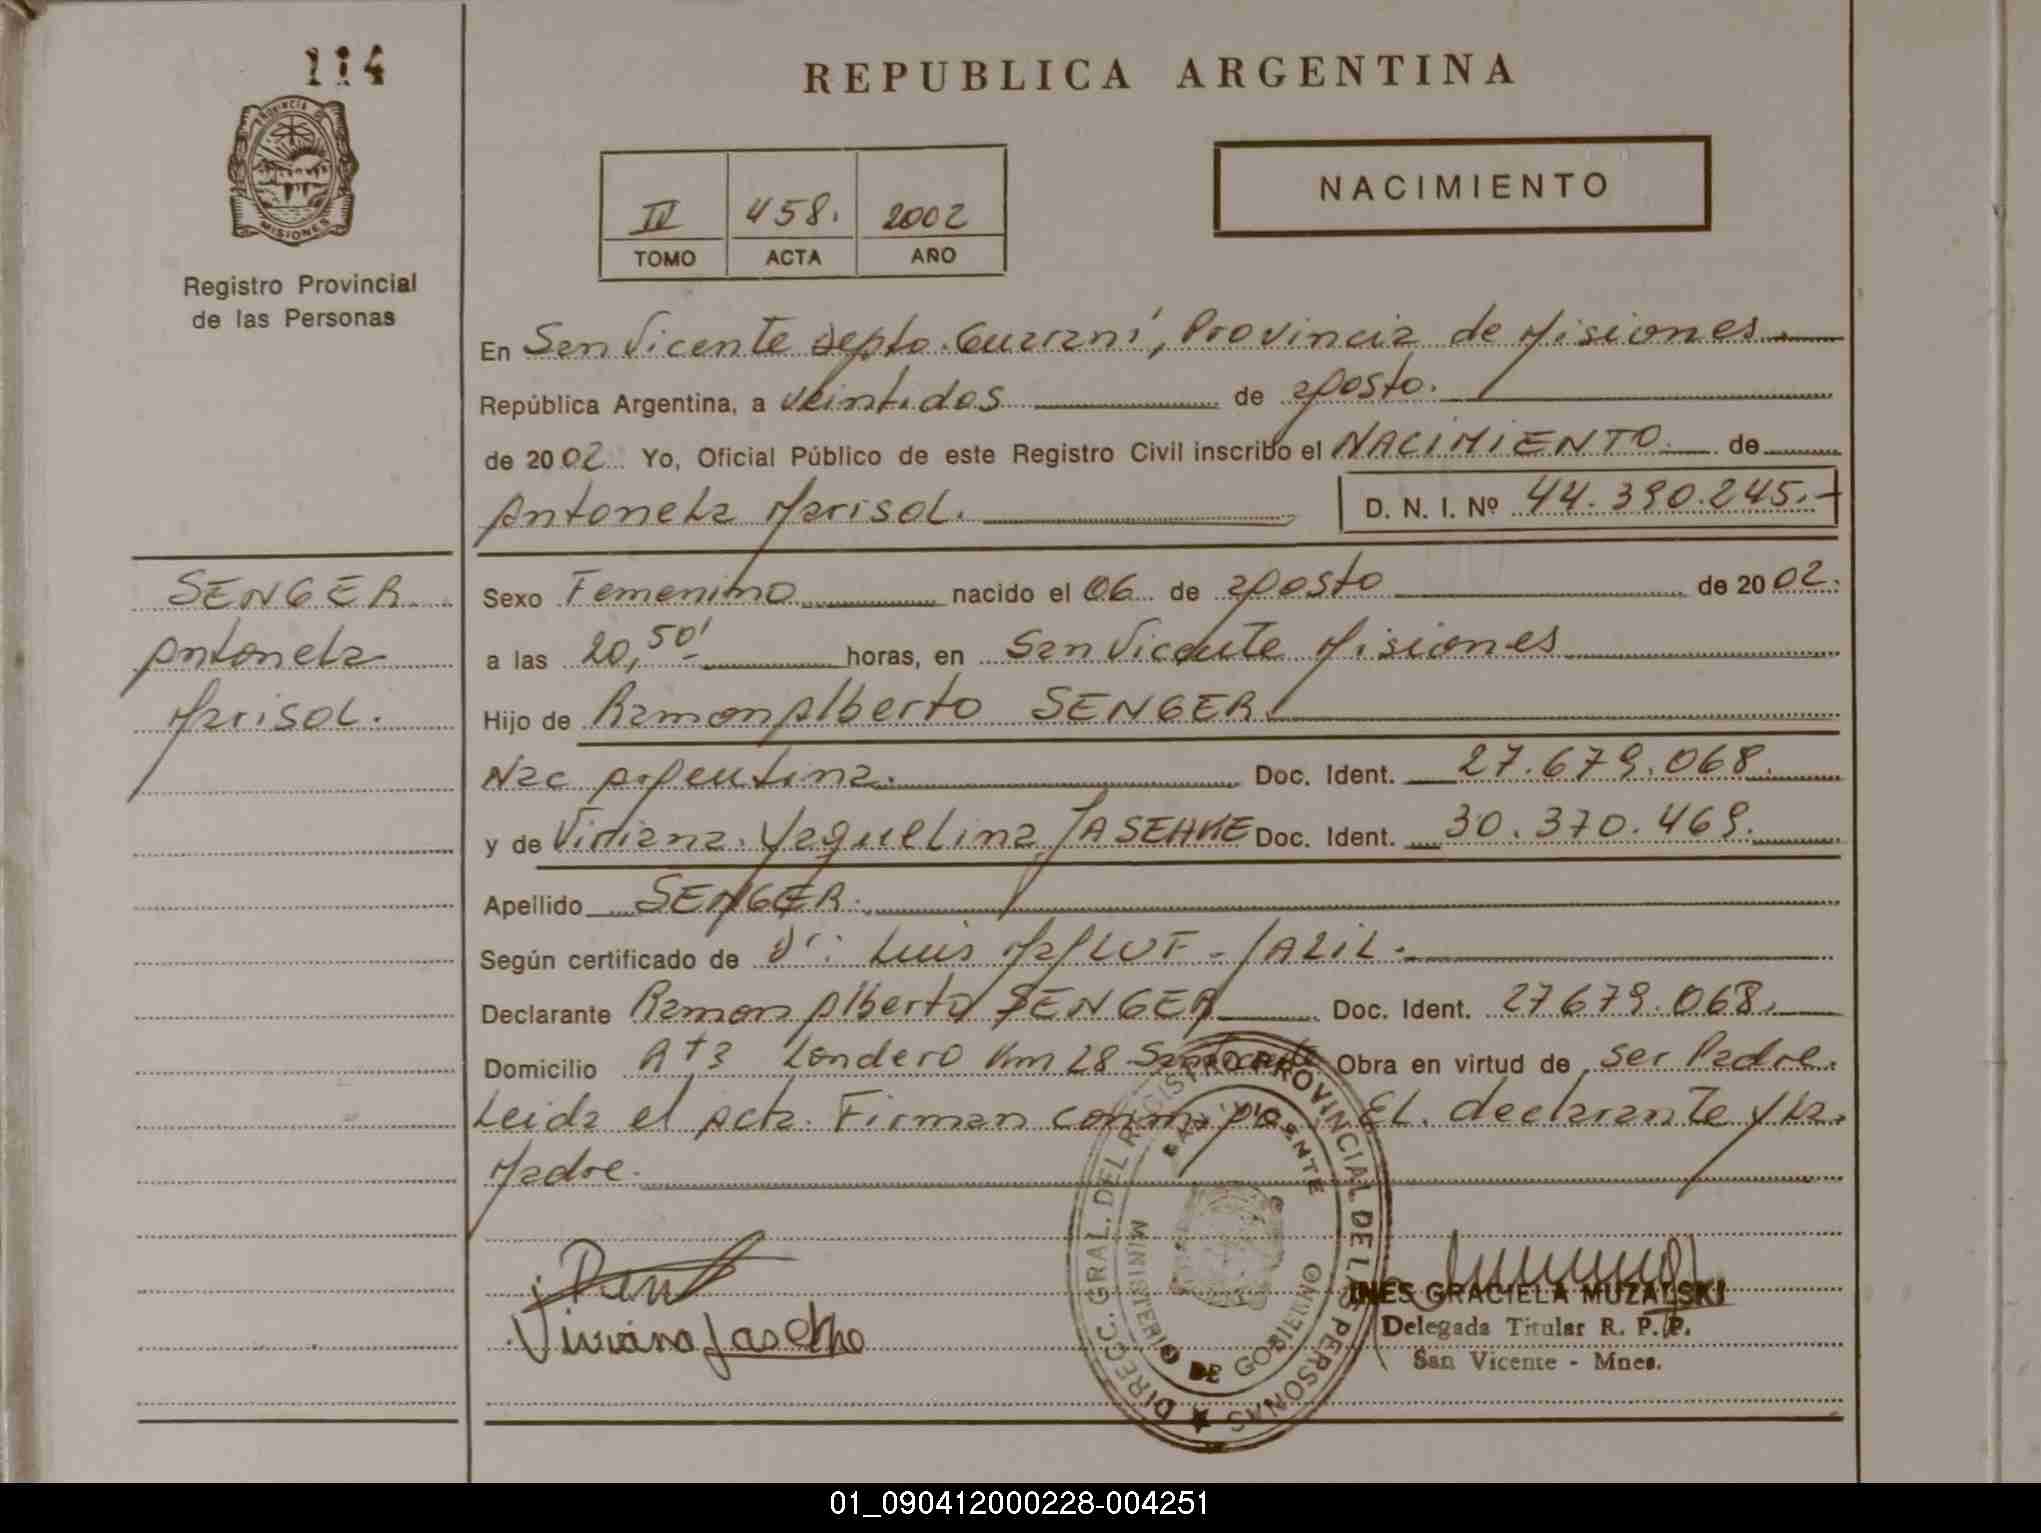 114
REPUBLICA ARGENTINA
PROVINCIA DE MISIONES
Registro Provincial
de las Personas
NACIMIENTO
IV 458. 2002
TOMO ACTA AÑO
En San Vicente Depto. Guaraní, Provincia de Misiones.
República Argentina, a veintidos de agosto.
de 2002 Yo, Oficial Público de este Registro Civil inscribo el NACIMIENTO de
Antonela Marisol. D. N. I. Nº 44.390.245.-
SENGER
Antonela
Marisol.
Sexo Femenino nacido el 06 de agosto de 2002.
a las 20,50' horas, en San Vicente Misiones
Hijo de Ramon Alberto SENGER.
Nac Argentina. Doc. Ident. 27.679.068.
y de Viviana Yaquelina JASEHKE Doc. Ident. 30.370.469.
Apellido SENGER.
Según certificado de Dr: Luis JALIL.
Declarante Ramon Alberto SENGER Doc. Ident. 27679.068.
Domicilio Londero Km 28 San Vicente Obra en virtud de ser Padre.
Leida el Acta. Firman conmigo EL. declarante y La.
Madre.
Viviana
DIRECC. GRAL. DEL REGISTRO PROVINCIAL DE LAS PERSONAS
SAN VICENTE
MINISTERIO DE GOBIERNO
INES GRACIELA MUZALSKI
Delegada Titular R. P. P.
San Vicente - Mnes.
01_090412000228-004251